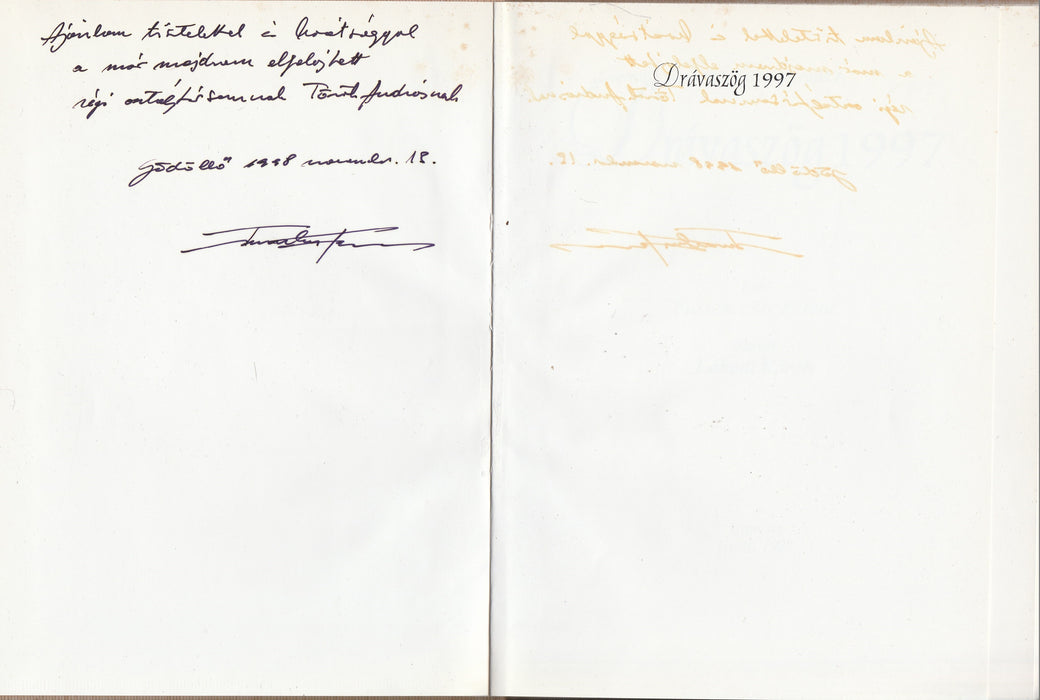 Ajánlom tisztelettel és barátsággal
a már majdnem elfelejtett
régi osztálytársamnak Török Andrásnak
Gödöllő 1998 november. 18.
Drávaszög 1997